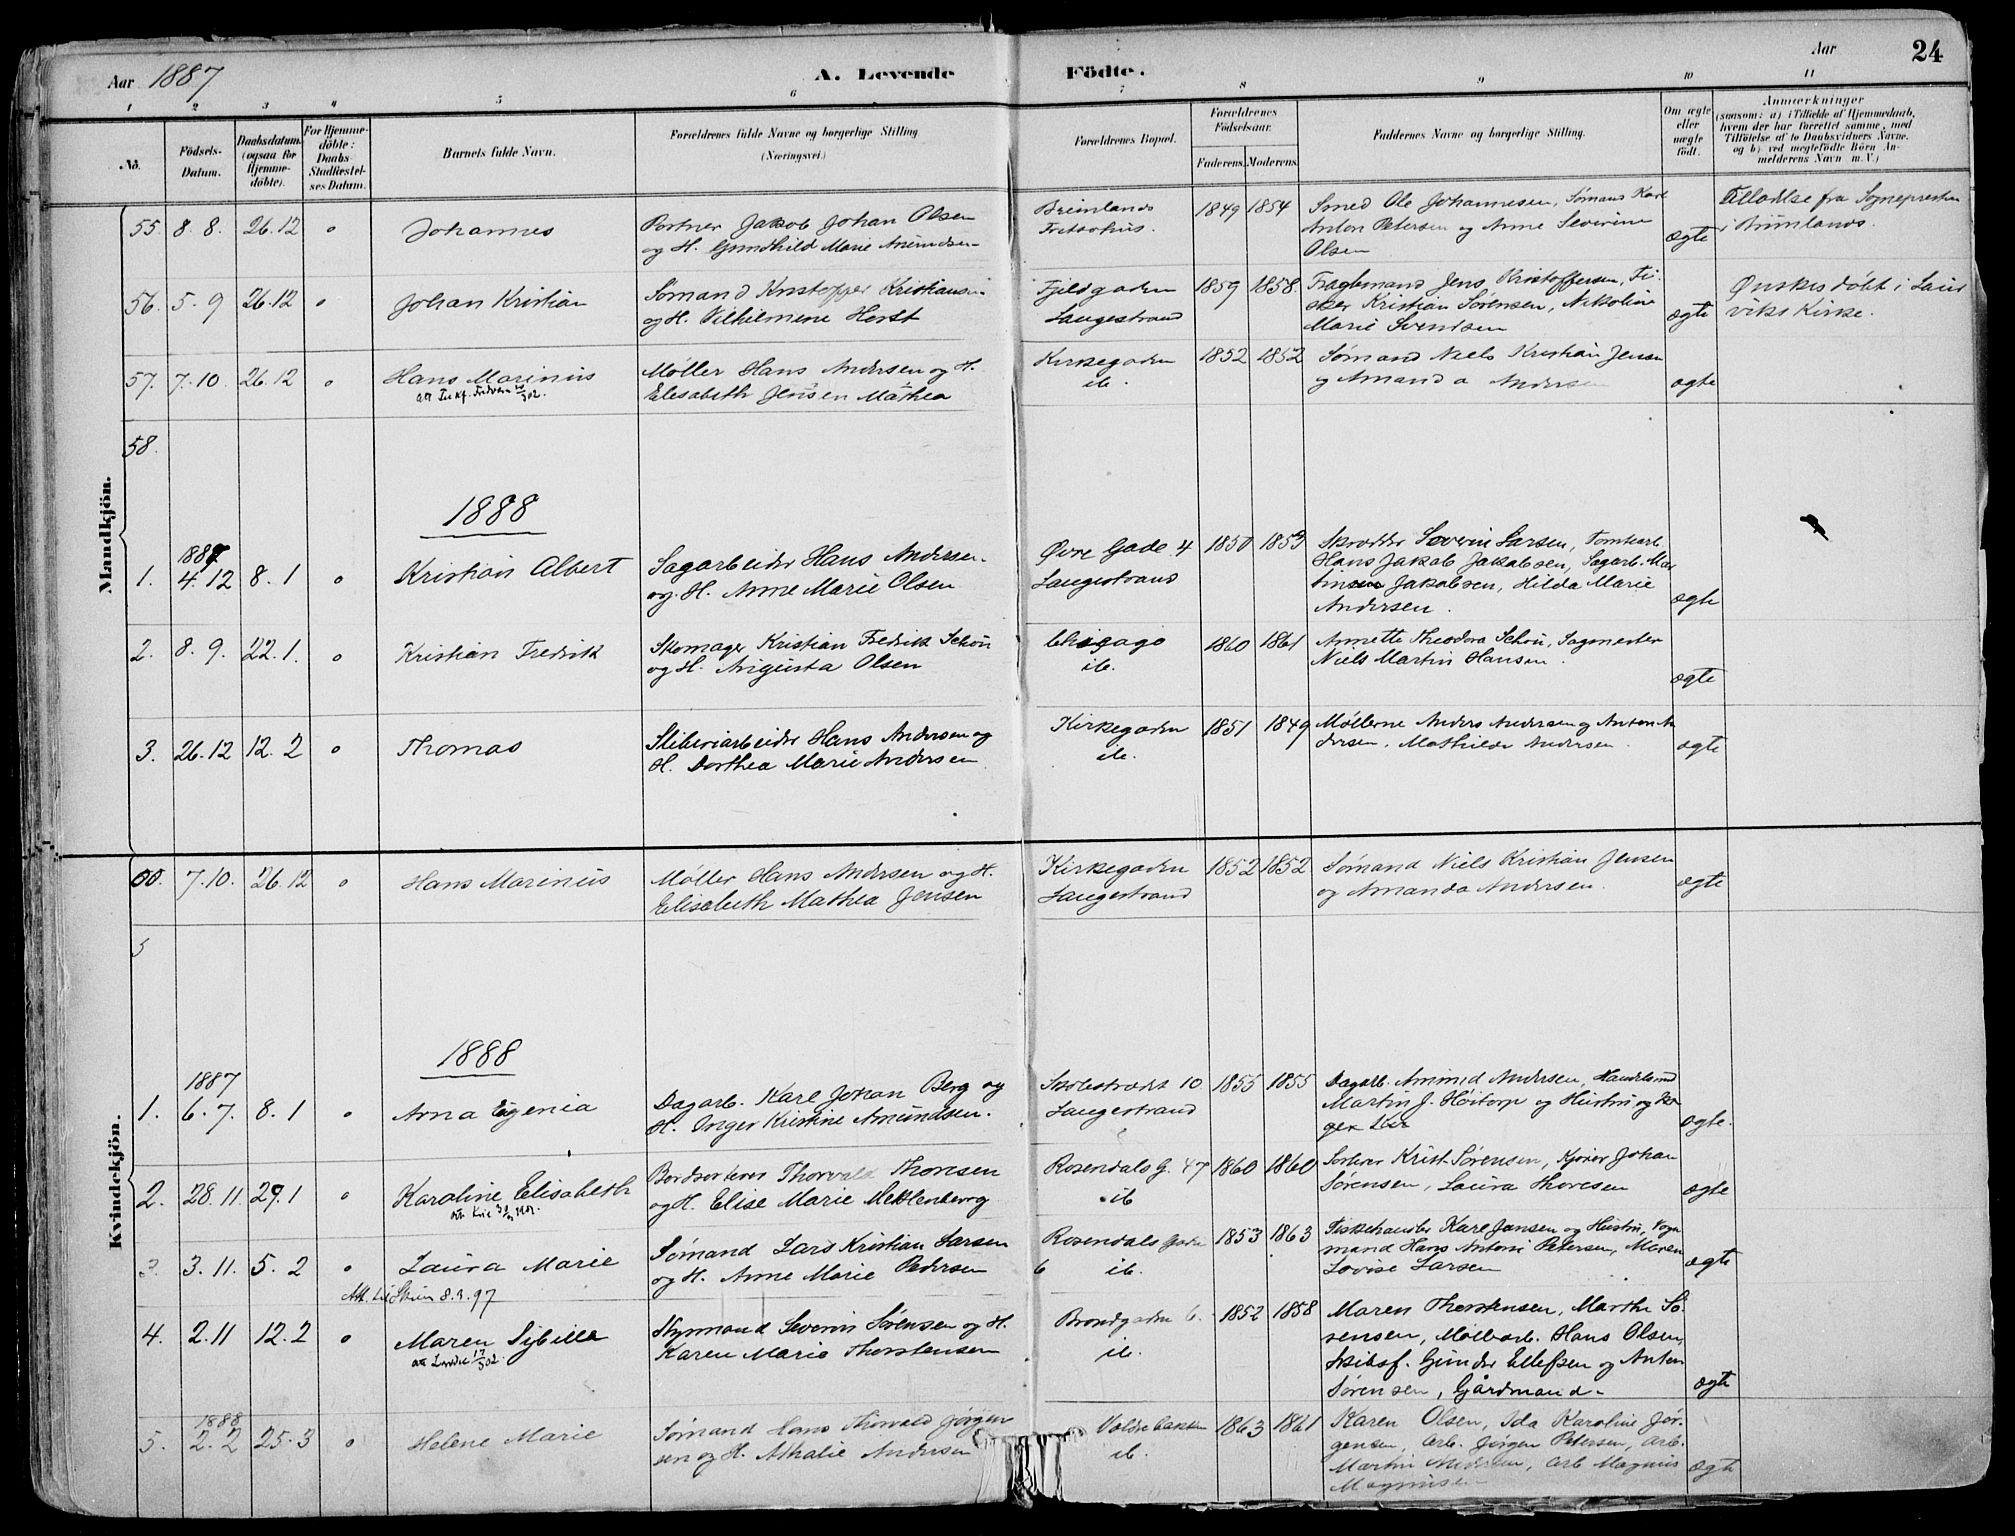 Aar 1887
A. Levende Födte.
Aar
24
1 2 3 4 5 6 7 8 9 10 11
No.
Födsels-Datum.
Daabsdatum. (ogsaa for Hjemme-döbte).
For Hjemme-döbte: Daabs-Stadfæstel-ses Datum.
Barnets fulde Navn.
Forældrenes fulde Navne og borgerlige Stilling. (Næringsvei.)
Forældrenes Bopæl.
Forældrenes Födselsaar.
Faderens. Moderens.
Faddernes Navne og borgerlige Stilling.
Om ægte eller uægte födt.
Anmærkninger
(saasom: a) i Tilfælde af Hjemmedaab, hvem der har forrettet samme, med Tilföielse af to Daabsvidners Navne. og b) ved uegtefödte Börn An-melderens Navn m. V.)
Mandkjön.
55. 8. 8. 26.12 o Johannes
Portner Jakob Johan Olsen
og H. Gundhild Marie Amundsen
Brunlands
Fritsøhus.
1849 1854
Smed Ole Johannesen, Sømand Karl
Anton Petersen og Anne Severine
Olsen
ægte
Tilladelse fra Sognepresten
i Brunlands.
56. 5. 9 26.12 o Johan Kristian
Sømand Kristoffer Kristiansen
og H. Vilhelmene Horst
Fjeldgaden
Langestrand
1859 1858
Fragtemand Jens Kristoffersen, Fi-
sker Kristian Sørensen, Nikoline
Marie Svendsen
ægte
Ønskes døbt i Laur
viks Kirke.
57. 7.10. 26.12 o Hans Marinus
Møller Hans Andersen og H.
Elisabeth Jensen Mathea
Kirkegaden
ib.
1852 1852
Sømand Niels Kristian Jensen
og Amanda Andersen
ægte
58.
1888
1887
1. 4.12 8.1 o Kristian Albert
Sagarbeider Hans Andersen
og H. Anne Marie Olsen
Øvre Gade 4
Langestrand
1850 1853
Skrædder Severin Larsen, Tomtearb.
Hans Jakob Jakobsen, Sagarb. Mar
tin Jakobsen, Hilda Marie
Andersen.
ægte
2. 8. 9. 22.1. o Kristian Fredrik
Skomager Kristian Fredrik Schøn
og H. Augusta Olsen
Chicago
ib.
1860 1861
Annette Theodora Schøn, Sagmester
Niels Martin Hansen.
ægte
3. 26.12 12.2 o Thomas
Sliberiarbeider Hans Andersen og
H. Dorthea Marie Andersen
Kirkegaden
ib.
1851 1849
Møllerne Anders Andersen og Anton An
dersen, Mathilde Andersen.
ægte
Kvindekjön.
00. 7.10. 26.12 o Hans Marinus
Møller Hans Andersen og H.
Elisabeth Mathea Jensen
Kirkegaden
Langestrand
1852 1852
Sømand Niels Kristian Jensen
og Amanda Andersen.
ægte
5
1888
1887
1. 6.7. 8.1 o Anna Eugenia
Dagarb. Karl Johan Berg og
H. Inger Kristine Amundsen.
Skolestrædet 10
Langestrand
1855 1855
Dagarb. Amund Andersen, Handelsmd
Martin J. Høitorp og Hustru og
ægte.
2. 28.11. 29.1 o Karoline Elisabeth
Bordsorterer Thorvald Thoresen
og H. Elise Marie Meklenborg
Rosendals G. 47
ib
1860 1860
Sorterer Krist. Sørensen, Kjører Johan
Sørensen, Laura Thoresen
ægte
3. 3.11. 5.2 o Laura Marie
Att. til Skien 8.3.97
Sømand Lars Kristian Larsen
og H. Anne Marie Pedersen
Rosendals Gade
6 ib.
1853 1863
Fiskehandler Karl Jansen og Hustru, Vogn
mand Hans Anton Petersen, Maren
Lovise Larsen
ægte
4. 2.11 12.2 o Maren Sybille
Styrmand Severin Sørensen og H.
Karen Marie Thorstensen
Brondgaden 6.
ib.
1852 1858
Maren Thorstensen, Marthe Sø-
rensen, Møllearb. Hans Olsen,
Skibsf. Gunder Ellefsen og Anton
Sørensen, Gårdmand.
ægte
1888
5. 2.2 25.3 o Helene Marie
Sømand Hans Thorvald Jørgen
sen og H. Athalie Andersen
Valdebakken
ib.
1863 1861
Karen Olsen, Ida Karoline Jør-
gensen, Arb. Jørgen Petersen, Arb.
Martin Andersen, Arb Magnus
Magnusen
ægte